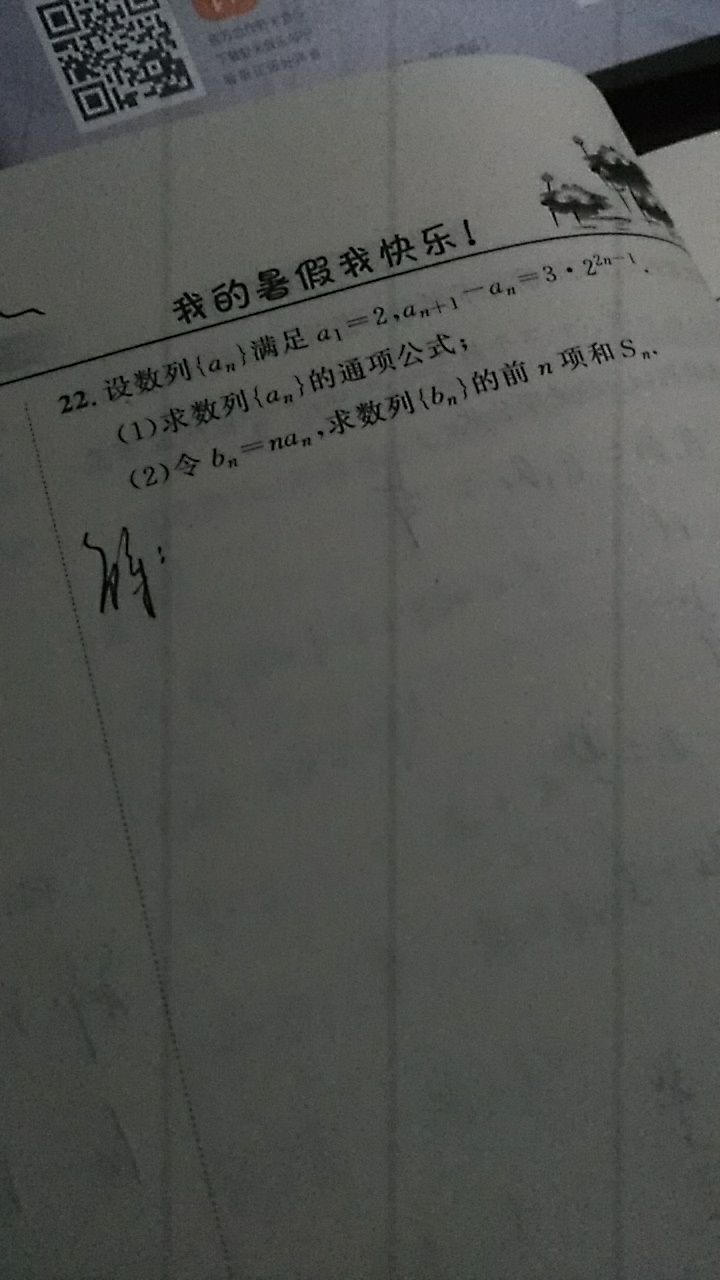 我的暑假我快乐!
22. 设数列{aₙ}满足 a₁=2,aₙ₊₁-aₙ=3·2²ⁿ⁻¹.
(1)求数列{aₙ}的通项公式;
(2)令 bₙ=naₙ,求数列{bₙ}的前 n 项和Sₙ.
解: